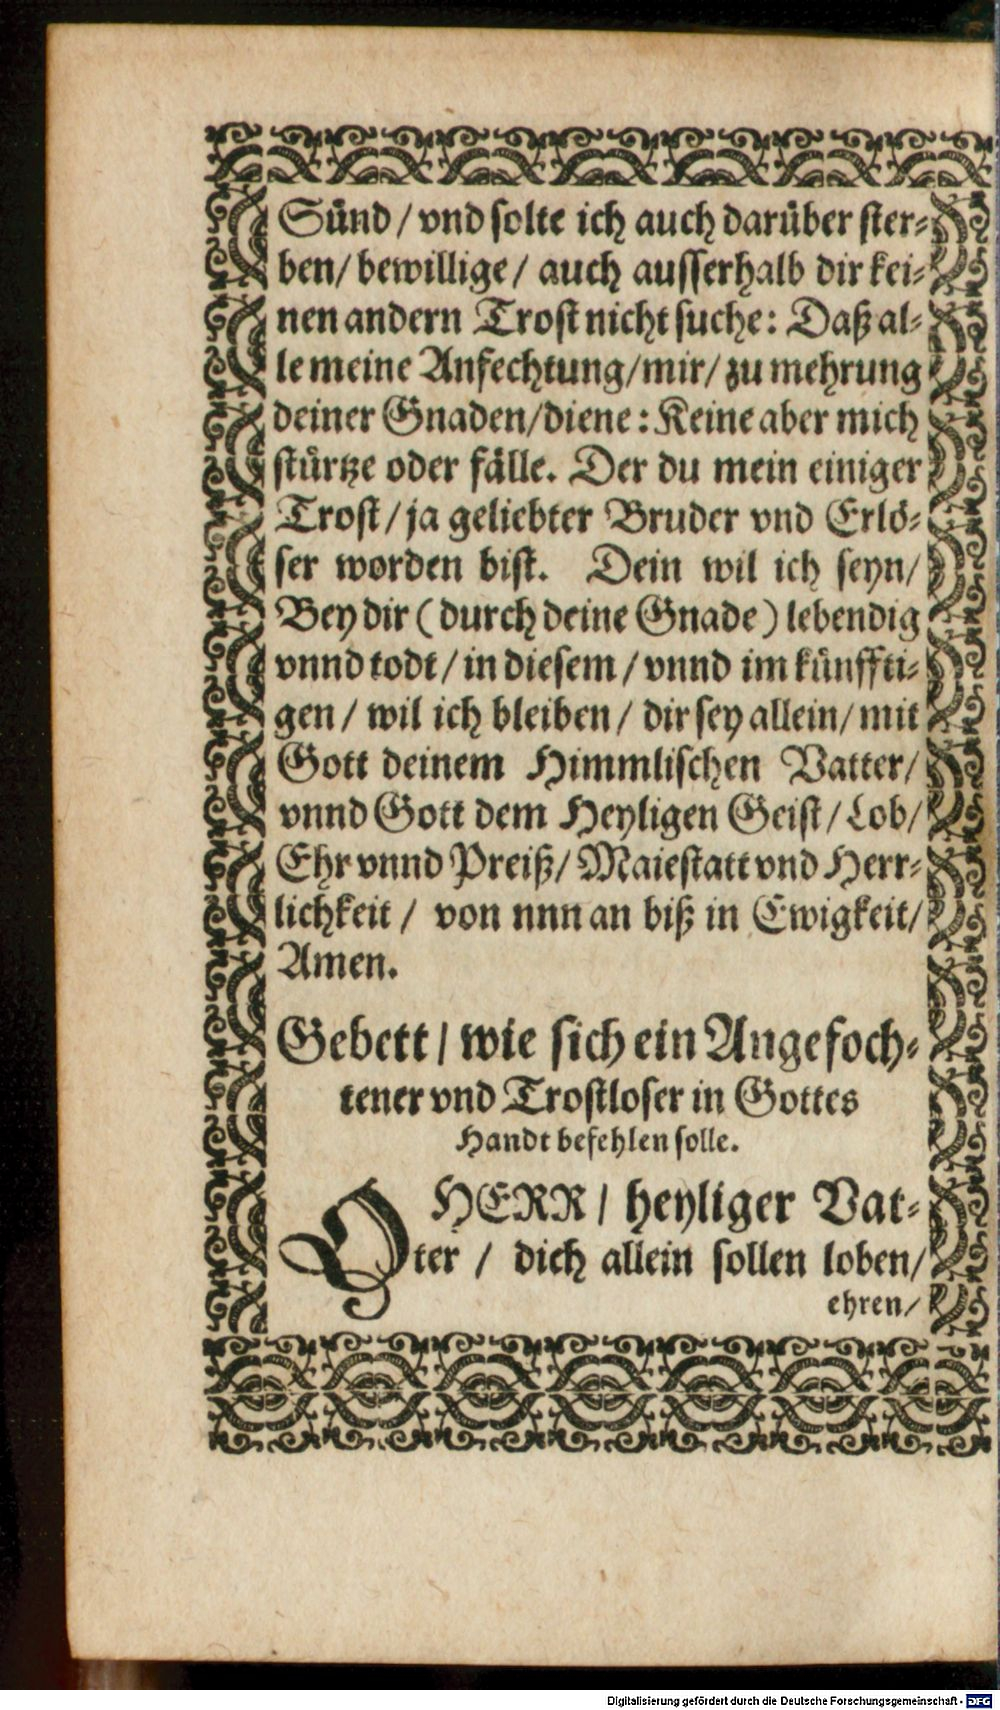 Sünd / vnd solte ich auch darüber ster⸗
ben / bewillige / auch ausserhalb dir kei⸗
nen andern Trost nicht suche: Daß al⸗
le meine Anfechtung / mir / zu mehrung
deiner Gnaden / diene: Keine aber mich
stürtze oder fälle. Der du mein einiger
Trost / ja geliebter Bruder vnd Erlö⸗
ser worden bist. Dein wil ich seyn /
Bey dir ( durch deine Gnade ) lebendig
vnnd todt / in diesem / vnnd im künffti⸗
gen / wil ich bleiben / dir sey allein / mit
Gott deinem Himmlischen Vatter /
vnnd Gott dem Heyligen Geist / Lob /
Ehr vnnd Preiß / Maiestatt vnd Herr⸗
lichkeit / von nnn an biß in Ewigkeit /
Amen.
Gebett / wie sich ein Angefoch⸗
tener vnd Trostloser in Gottes
Handt befehlen solle.
O HERR / heyliger Vat⸗
ter / dich allein sollen loben /
ehren /
Digitalisierung gefördert durch die Deutsche Forschungsgemeinschaft - DFG